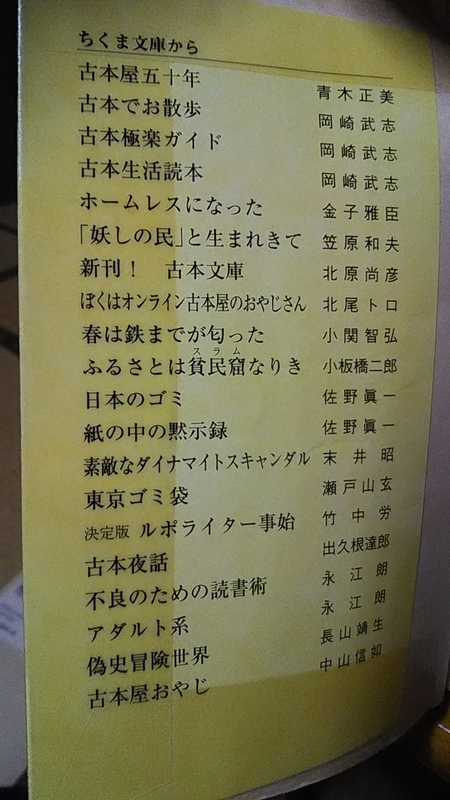 ちくま文庫から
古本屋五十年 青木正美
古本でお散歩 岡崎武志
古本極楽ガイド 岡崎武志
古本生活読本 岡崎武志
ホームレスになった 金子雅臣
「妖しの民」と生まれきて 笠原和夫
新刊！　古本文庫 北原尚彦
ぼくはオンライン古本屋のおやじさん 北尾トロ
春は鉄までが匂った 小関智弘
スラム
ふるさとは貧民窟なりき 小板橋二郎
日本のゴミ 佐野眞一
紙の中の黙示録 佐野眞一
素敵なダイナマイトスキャンダル 末井昭
東京ゴミ袋 瀬戸山玄
決定版 ルポライター事始 竹中労
古本夜話 出久根達郎
不良のための読書術 永江朗
アダルト系 永江朗
偽史冒険世界 長山靖生
古本屋おやじ 中山信如